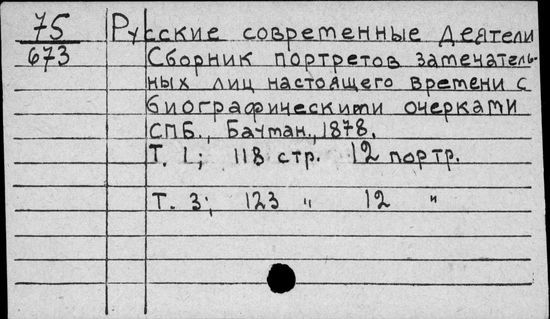 75 Русские современные деятели
673 Сборник портретов замечатель-
ных лиц настоящего времени с
биографическими очерками
СПБ., Бауман., 1878.
Т. 1; 118 стр. 12 портр.
Т. 3; 123 " 12 "